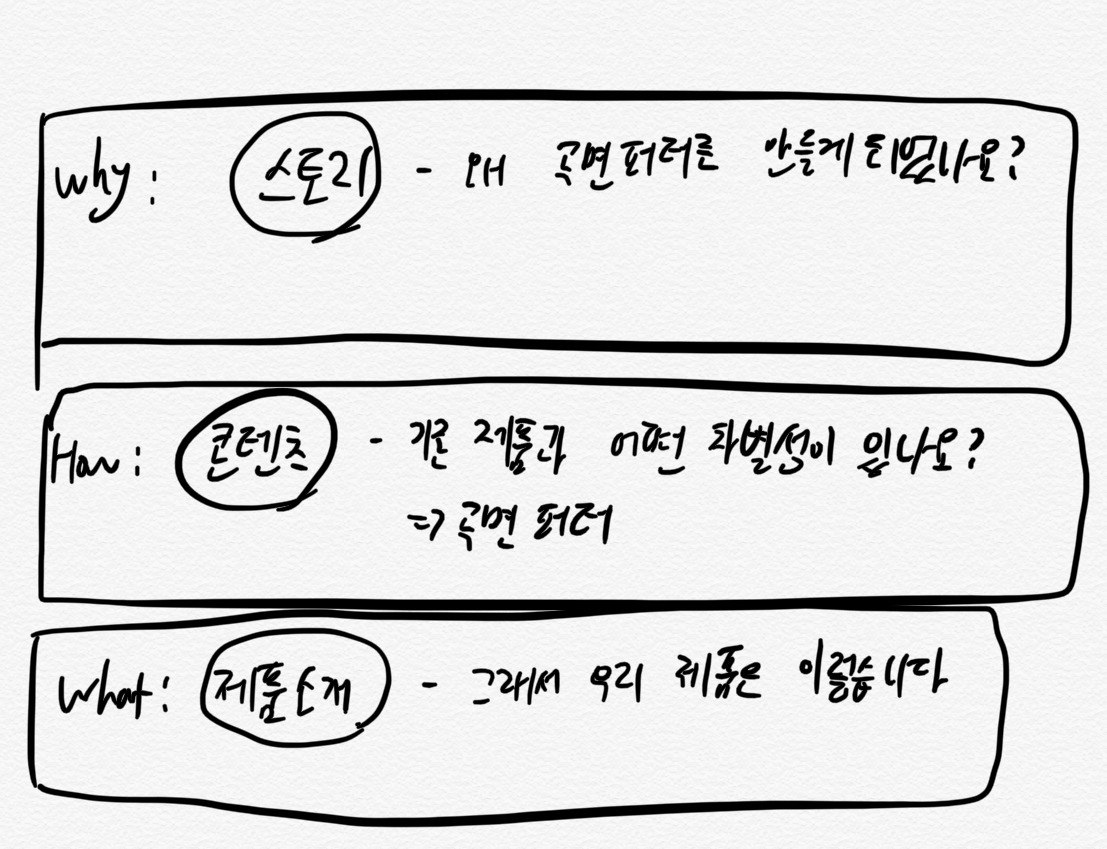 Why: 스토리 - 왜 곡면퍼터를 만들게 되었나요?
How: 콘텐츠 - 기존 제품과 어떤 차별성이 있나요?
=> 곡면 퍼터
What: 제품소개 - 그래서 우리 제품은 이렇습니다